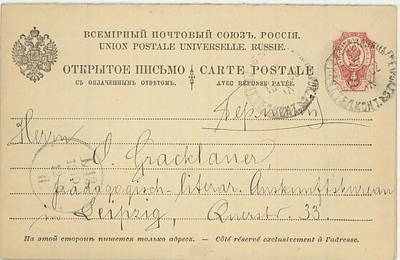 ВСЕМІРНЫЙ ПОЧТОВЫЙ СОЮЗЪ. РОССІЯ.
UNION POSTALE UNIVERSELLE. RUSSIE.
ОТКРЫТОЕ ПИСЬМО
CARTE POSTALE
СЪ ОПЛАЧЕННЫМЪ ОТВѢТОМЪ.
AVEC RÉPONSE PAYÉE.
Herrn
O. Gracklauer,
pädagogisch-literar. Auskunftsbureau
in Leipzig, Querstr. 33.
На этой сторонѣ пишется только адресъ. — Côté réservé exclusivement à l'adresse.